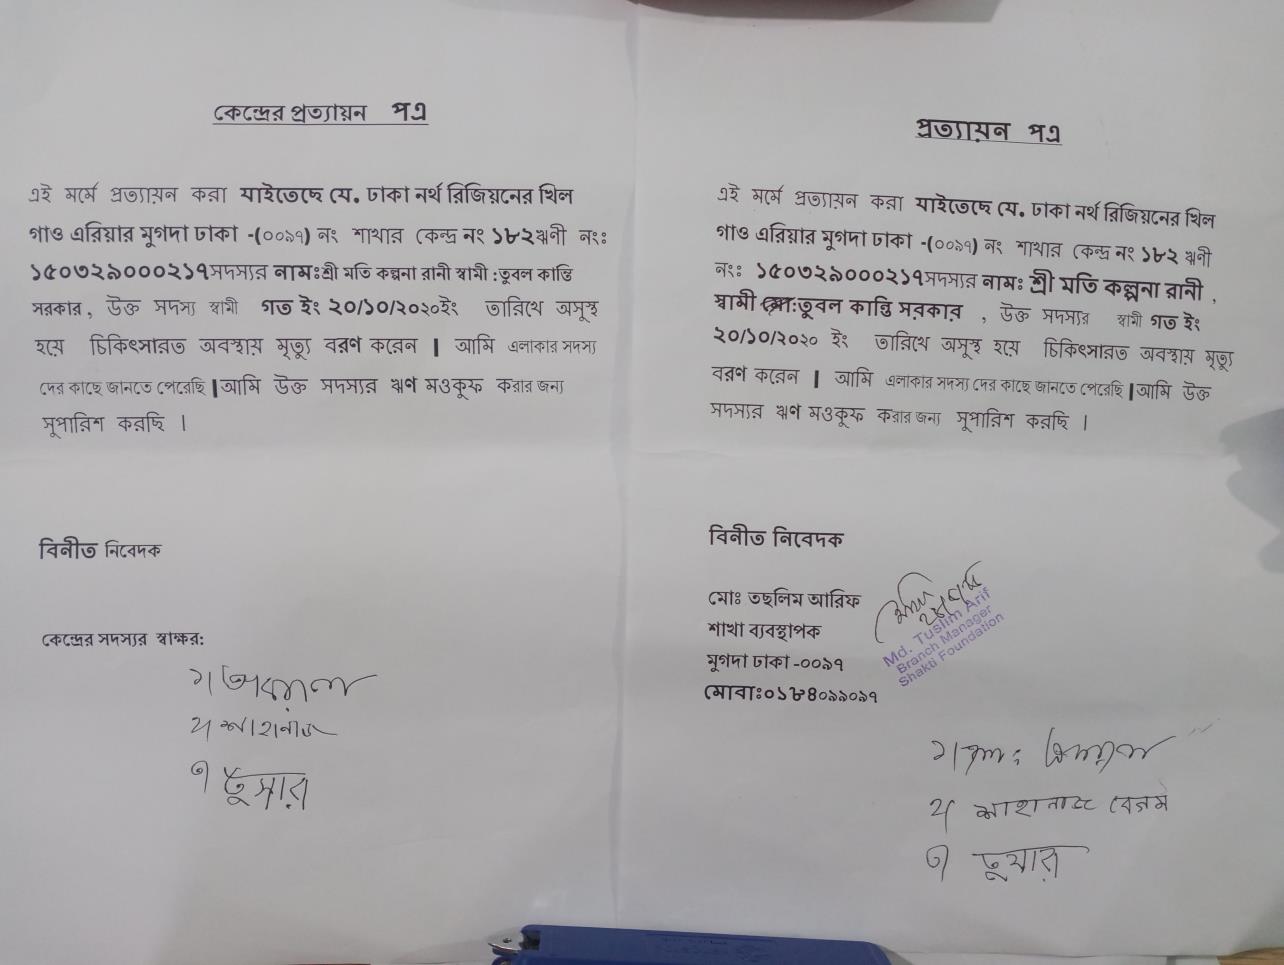 কেন্দ্রের প্রত্যায়ন পত্র
এই মর্মে প্রত্যায়ন করা যাইতেছে যে. ঢাকা নর্থ রিজিয়নের খিল
গাও এরিয়ার মুগদা ঢাকা -(০০৯৭) নং শাখার কেন্দ্র নং ১৮২ঋনী নং:
১৫০৩২৯০০০২১৭সদস্যর নামঃশ্রী মতি কল্পনা রানী স্বামী : তুবল কান্তি
সরকার , উক্ত সদস্য স্বামী গত ইং ২০/১০/২০২০ইং তারিখে অসুস্থ
হয়ে চিকিৎসারত অবস্থায় মৃত্যু বরণ করেন | আমি এলাকার সদস্য
দের কাছে জানতে পেরেছি | আমি উক্ত সদস্যর ঋণ মওকুফ করার জন্য
সুপারিশ করছি ।
বিনীত নিবেদক
কেন্দ্রের সদস্যর স্বাক্ষর:
২। শাহানাজ
৩। তুষার
প্রত্যায়ন পত্র
এই মর্মে প্রত্যায়ন করা যাইতেছে যে. ঢাকা নর্থ রিজিয়নের খিল
গাও এরিয়ার মুগদা ঢাকা -(০০৯৭) নং শাখার কেন্দ্র নং ১৮২ ঋনী
নং: ১৫০৩২৯০০০২১৭সদস্যর নামঃ শ্রী মতি কল্পনা রানী ,
স্বামী :তুবল কান্তি সরকার , উক্ত সদস্যর স্বামী গত ইং
২০/১০/২০২০ ইং তারিখে অসুস্থ হয়ে চিকিৎসারত অবস্থায় মৃত্যু
বরণ করেন | আমি এলাকার সদস্য দের কাছে জানতে পেরেছি | আমি উক্ত
সদস্যর ঋণ মওকুফ করার জন্য সুপারিশ করছি ।
বিনীত নিবেদক
মোঃ তছলিম আরিফ
শাখা ব্যবস্থাপক
মুগদা ঢাকা -০০৯৭
মোবাঃ০১৮৪০৯৯০৯৭
Md. Tuslim Arif
Branch Manager
Shakti Foundation
২। শাহানাজ বেগম
৩। তুষার